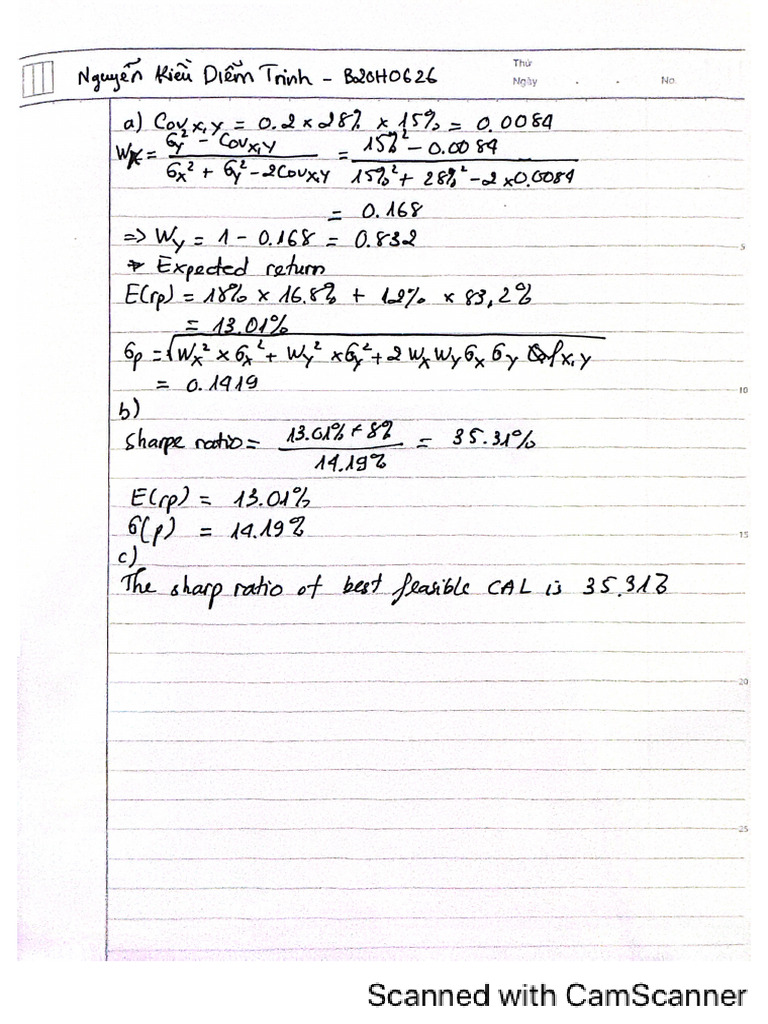 Nguyễn Kiều Diễm Trinh - B20H0626
Thứ
Ngày . . No.
a) Cov x,y = 0.2 x 28% x 15% = 0.0084
Wx = (σy² - Cov x,y) / (σx² + σy² - 2Cov x,y) = (15%² - 0.0084) / (15%² + 28%² - 2 x 0.0084)
= 0.168
=> Wy = 1 - 0.168 = 0.832
→ Expected return
E(rp) = 18% x 16.8% + 12% x 83,2%
= 13.01%
σp = √(Wx² x σx² + Wy² x σy² + 2 Wx Wy σx σy ρx,y)
= 0.1419
5
10
b)
Sharpe ratio = (13.01% - 8%) / 14.19% = 35.31%
E(rp) = 13.01%
σ(p) = 14.19%
15
c)
The sharp ratio of best feasible CAL is 35.31%
20
25
Scanned with CamScanner